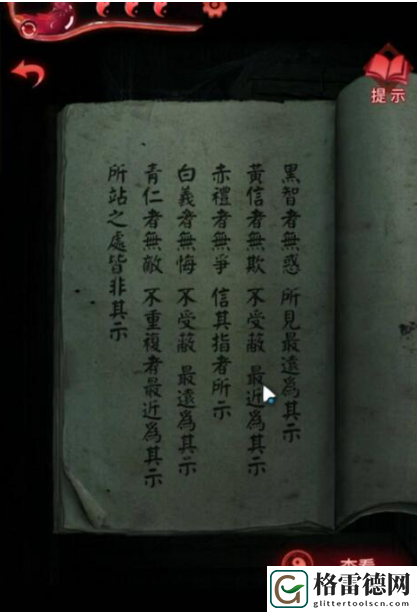 提示
黑智者無惑 所見最遠為其示
黃信者無欺 不受蔽 最近為其示
赤禮者無爭 信其指者所示
白義者無悔 不受蔽 最遠為其示
青仁者無敵 不重複者最近為其示
所站之處皆非其示
查看
格雷德网
glittertoolscn.com